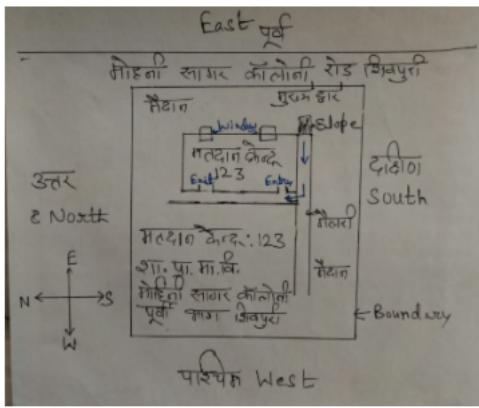 East पूर्व
मोहनी सागर कॉलोनी रोड शिवपुरी
मैदान
मुख्य द्वार
Window
Slope
मतदान केन्द्र
123
Exit
Entry
उत्तर
North
दक्षिण
South
गैलरी
मैदान
मतदान केन्द्र: 123
शा. प्रा. मा. वि.
मोहिनी सागर कॉलोनी
पूर्वी भाग शिवपुरी
E
N
S
W
Boundary
पश्चिम West